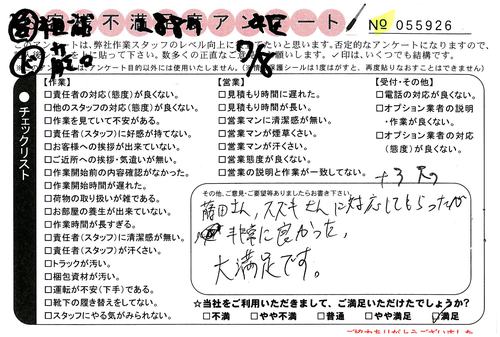 不満度アンケート
№ 055926
このアンケートは、弊社作業スタッフのレベル向上に
たいと思います。否定的なアンケートになりますので、
数多くの正直な
お願いします。✓印は、いくつでも結構です。
アンケート目的以外には使用いたしません。
保護シールは1度はがすと、再度貼りなおすことはできません)
7/8
● チェックリスト
【作業】
□責任者の対応(態度)が良くない。
□他のスタッフの対応(態度)が良くない。
□作業を見ていて不安がある。
□責任者(スタッフ)に好感が持てない。
□お客様への挨拶が出来ていない。
□ご近所への挨拶・気遣いが無い。
□作業開始前の内容確認がなかった。
□作業開始時間が遅れた。
□荷物の取り扱いが雑である。
□お部屋の養生が出来ていない。
□作業時間が長すぎる。
□責任者(スタッフ)に清潔感が無い。
□責任者(スタッフ)が汗くさい。
□トラックが汚い。
□梱包資材が汚い。
□運転が安い(下手)である。
□靴下の履き替えをしてない。
□スタッフにやる気がみられない。
【営業】
□見積もり時間に遅れた。
□見積もり時間が長い。
□営業マンに清潔感が無い。
□営業マンが煙草くさい。
□営業マンが汗くさい。
□営業態度が良くない。
□営業の説明と作業が一致してない。
【受付・その他】
□電話の対応が良くない。
□オプション業者の説明
・作業が良くない。
□オプション業者の対応
(態度)が良くない。
その他、ご意見・ご要望等ありましたらお書き下さい。
藤田さん,スズキさんに対応してもらったが
非常に良かった,
大満足です。
☆当社をご利用いただきまして、ご満足いただけたでしょうか?
□不満 □やや不満 □普通 □やや満足 ☑満足
ご協力ありがとうございました